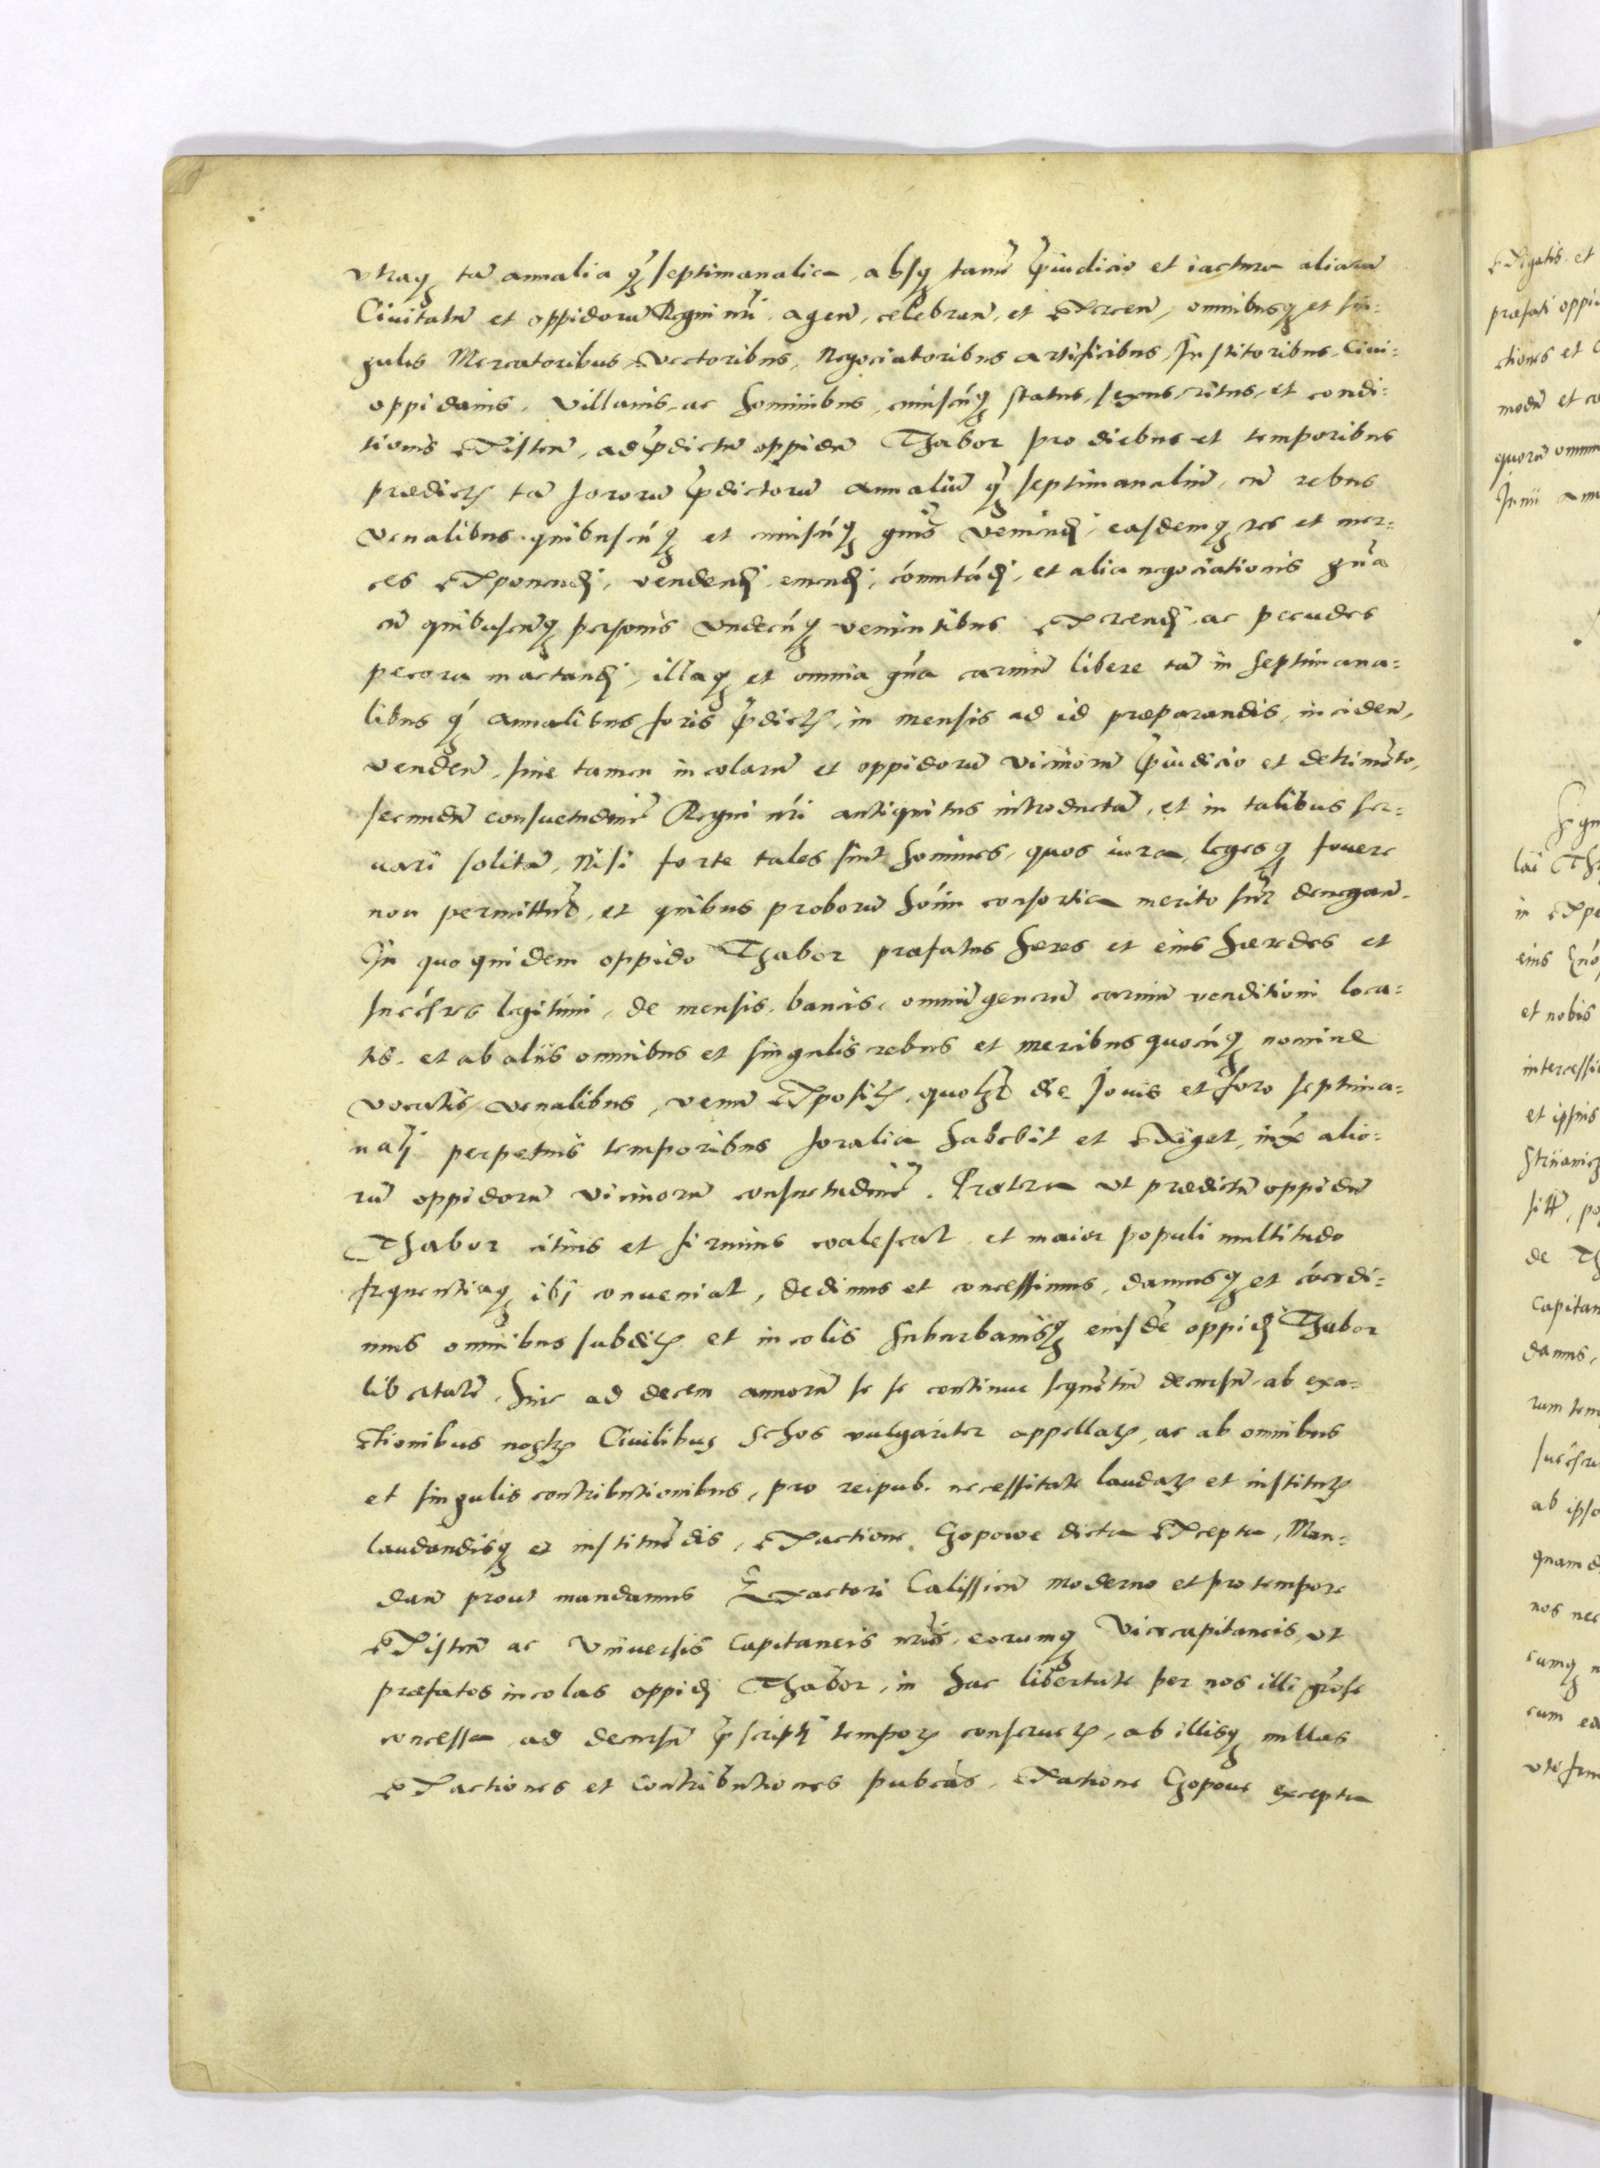 vtraq₃ tā annalia q̃ septimanalia, absq₃ tamē p̄iudicio et iactura aliarū
Ciuitatū et oppidorū Regni nr̄i agen̄, celebran̄, et exercen̄, omnibusq₃ et sin=
gulis Mercatoribus, Vectoribus, Negociatoribus artificibus, Institoribus, Ciui:
oppidanis, Villanis, ac hominibus, cuiuscūq₃ status, sexus, ritus, et condi:
tionis existen̄, ad p̄dictū oppidū Thabor pro diebus et temporibus
prædict₃ tā fororū p̄dictorū annaliū q̃ septimanaliū, cū rebus
venalibus quibuscūq₃ et cuiuscūq₃ gn̄is veniendi, easdemq₃ res et mer:
ces exponendi, vendendi, emendi, cōmutādi, et alia negociationis gn̄a
cū quibuscunq₃ personis vndecūq₃ venientibus exercendi, ac pecudes
pecora mactandi, illaq₃ et omnia gn̄a carniū libere tā in septimana=
libus q̃ annalibus foris p̄dict₃, in mensis ad id præparandis, inciden̄,
venden̄, sine tamen incolarū et oppidorū vicinorū p̄iudicio et detrimēto,
secundū consuetudinē Regni nr̄i antiquitus introductā, et in talibus ser=
uari solitā, Nisi forte tales sint homines, quos iura, legesq₃ fouere
non permittūt, et quibus proborū hōim consortia merito sūt denegan̄.
In quo quidem oppido Thabor præfatus hæres et eius hæredes et
succēsres legitimi, de mensis, bancis, omniū generū carniū venditioni loca=
tis, et ab aliis omnibus et singulis rebus et mercibus quocūq₃ nomine
vocatis venalibus, venū exposit₃, quolz̄t die Jouis et foro septima=
nalj perpetuis temporibus foralia habebit et exiget, iux̄ alio:
rū oppidorū vicinorū consuetudinē. Præterea vt prædictū oppidū
Thabor citius et firmius coalescat et maior populi multitudo
frequentiaq₃ ibj conueniat, dedimus et concessimus, damusq₃ et cōcedi=
mus omnibus subdit₃ et incolis suburbanisq₃ eiusdē oppidi Thabor
libertatē, hinc ad decem annorū se se continue sequētiū decursū, ab exa=
ctionibus nostr₃ Ciuilibus Schos vulgariter appellat₃, ac ab omnibus
et singulis contributionibus, pro reipub. necessitate laudat₃ et institut₃
laudandisq₃ et instituēdis, exactione Czopowe dicta excepta, Man=
dan̄ prout mandamus Exactori Calissien̄ moderno et pro tempore
existen̄ ac vniuersis Capitaneis nr̄is, eorumq₃ Vicecapitaneis, vt
præfatos incolas oppidi Thabor, in hac libertate per nos illi gr̄ose
concessa, ad decursū p̄scripti tempor₃ conseruet₃, ab illisq₃ nullas
exactiones et contributiones pub̄cas, exactione Czopowe excepta